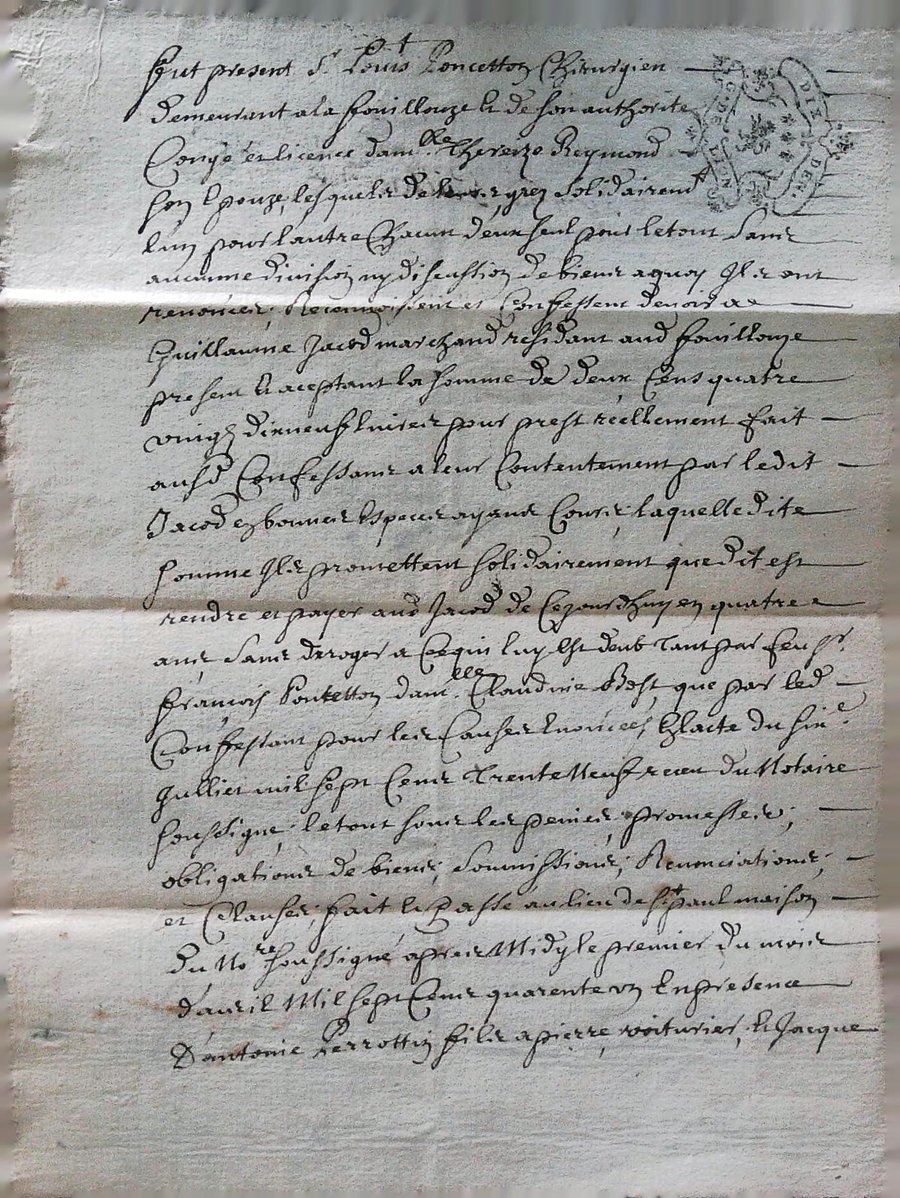 fut present Sr Louis Poncetton Chirurgien
demeurant a la fouillouze & de son authorite
Congé et licence damlle Thereize Reymond
son Epouze, lesquels de leurs grez Solidairemt
l'un pour lautre Chacun deux seul pour le tout Sans
aucunne division ny discussion de biens a quoy Ils ont
renoncés, Reconnoissent et Confessent devoir a
Guillaume Jacod marchand residant aud fouillouze
present & aceptant la somme de deux Cens quatre
vingt dix neuf livres pour prest réellement fait
ausd Confessans a leur Contentement par ledit
Jacod en bonnes Especes ayans Cours, laquelle dite
somme Ils promettent solidairement que dit est
rendre et payer aud Jacod de Cejourdhuy en quatre
ans Sans deroger a Ce qui luy Est deub Tant par feu Sr
françois Pontetton damlle Claudine Bost que par led
Confessant pour les Causes Enoncées, Efaite du
Juillet mil sept Cens Trente Neuf receu du Notaire
soussigné, le tout sous les peines, promesses,
obligations de biens, Soumissions, Renonciations,
et Clauses, fait & Passé au lieu de St paul maison
du Nore soussigné apres Midy le premier du mois
d'avril Mil sept Cens quarente un En presence
D'antoine Perrottin fils a pierre, voiturier, & Jacque
DIX DEN.